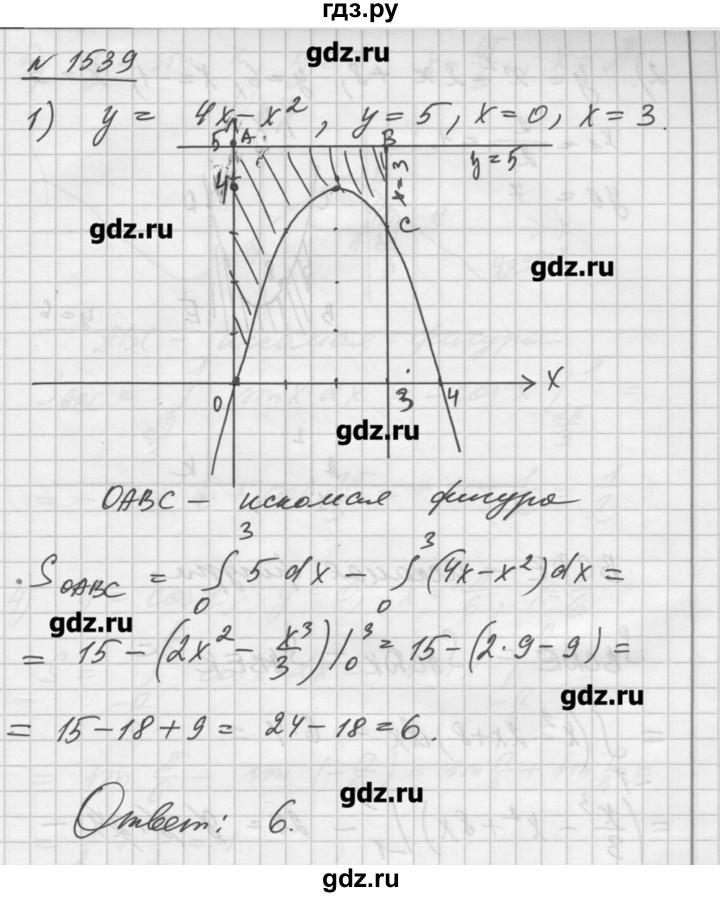 гдз.ру
gdz.ru
№ 1539
1) y = 4x - x², y = 5, x = 0, x = 3.
5 A B
y = 5
4
x = 3
gdz.ru
C
gdz.ru
0 3 4 x
gdz.ru
OABC – искомая фигура
S_OABC = ∫₀³ 5 dx - ∫₀³ (4x - x²) dx =
gdz.ru
= 15 - (2x² - x³/3) |₀³ = 15 - (2·9 - 9) =
gdz.ru
= 15 - 18 + 9 = 24 - 18 = 6.
gdz.ru
Ответ: 6.
gdz.ru